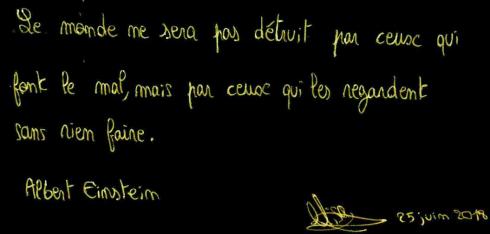 Le monde ne sera pas détruit par ceux qui
font le mal, mais par ceux qui les regardent
sans rien faire.
Albert Einstein
25 juin 2018